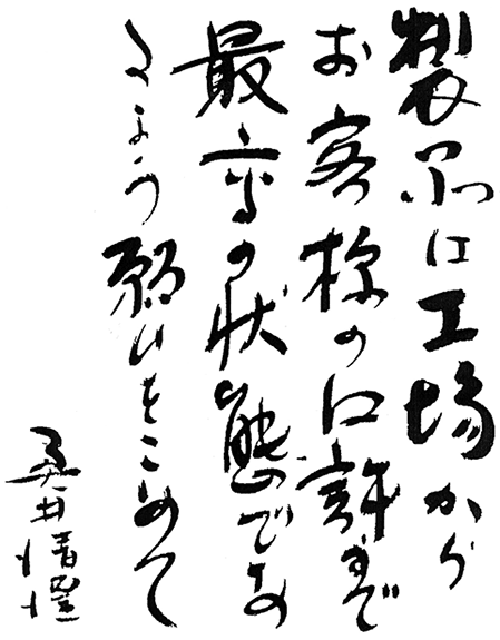 製品は工場から
お客様の口許まで
最高の状態であ
るよう願ひをこめて